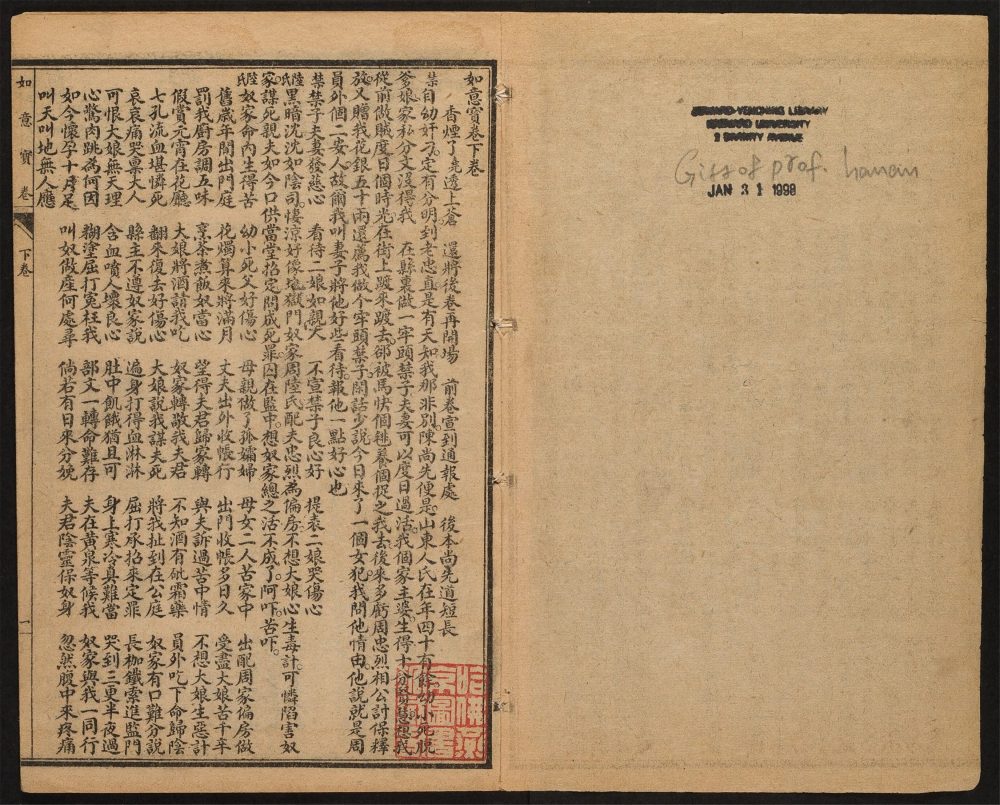 HARVARD-YENCHING LIBRARY
HARVARD UNIVERSITY
2 DIVINITY AVENUE
Gift of prof. hanan
JAN 31 1998
如意寶卷下卷
香煙了繞透上蒼 還將後卷再開場 前卷宣到通報處 後本尚先道短長
禁自幼奸刁定有分明到老忠直是有天知我那非別陳尚先便是山東人氏在年四十有餘幼小死脫
爹娘家私分文沒得我 在縣裏做一牢頭禁子夫妻可以度日過活我個家主婆生得十分賢慧想我
從前做賊度日個時光在街上踱來踱去部被馬快個捉之我去後來多虧周忠烈相公討保釋
放又贈我花銀五十兩還為我做个牢頭禁子閒話少說今日來了一個女犯我問他情由他說就是周
員外個二安人故爾我叫妻子將他好些看待報他一點好心也
禁禁子夫妻發慈心 看待二娘如親人 不宣禁子良心好 提表二娘哭傷心
陸氏黑暗沈沈如陰司悽涼好像地獄門奴家周陸氏配夫忠烈為偏房不想大娘心生毒計可憐陷害奴
家謀死親夫如今口供當堂招定問成死罪囚在監中想奴家總之活不成了阿吓苦吓
陸氏奴家命內生得苦 幼小死父好傷心 母親做了孤孀婦 母女二人苦家中 出配周家偏房做
舊歲年間出門庭 花燭算來將滿月 丈夫出外收帳行 出門收帳多日久 受盡大娘苦千辛
罰我廚房調五味 烹茶煮飯奴當心 望得夫君歸家轉 與夫訴過苦中情 不想大娘生惡計
假賞元宵在花廳 大娘將酒請我吃 奴家轉敬我夫君 不知酒有砒霜藥 員外吃下命歸陰
七孔流血堪憐死 翻來復去好傷心 大娘說我謀夫死 將我扯到在公庭 奴家有口難分說
哀哀痛哭稟大人 縣主不遵奴家說 遍身打得血淋淋 屈打承招來定罪 長枷鐵索進監門
可恨大娘無天理 含血噴人壞良心 肚中飢餓猶且可 身上寒冷真難當 哭到三更半夜過
心驚肉跳為何因 糊塗屈打冤枉我 部文一轉命難存 夫在黃泉等候我 奴家與我一同行
如今懷孕十月足 叫奴做產何處尋 倘若有日來分娩 夫君陰靈保奴身 忽然腹中來疼痛
叫天叫地無人應
如意寶 卷
下卷
一